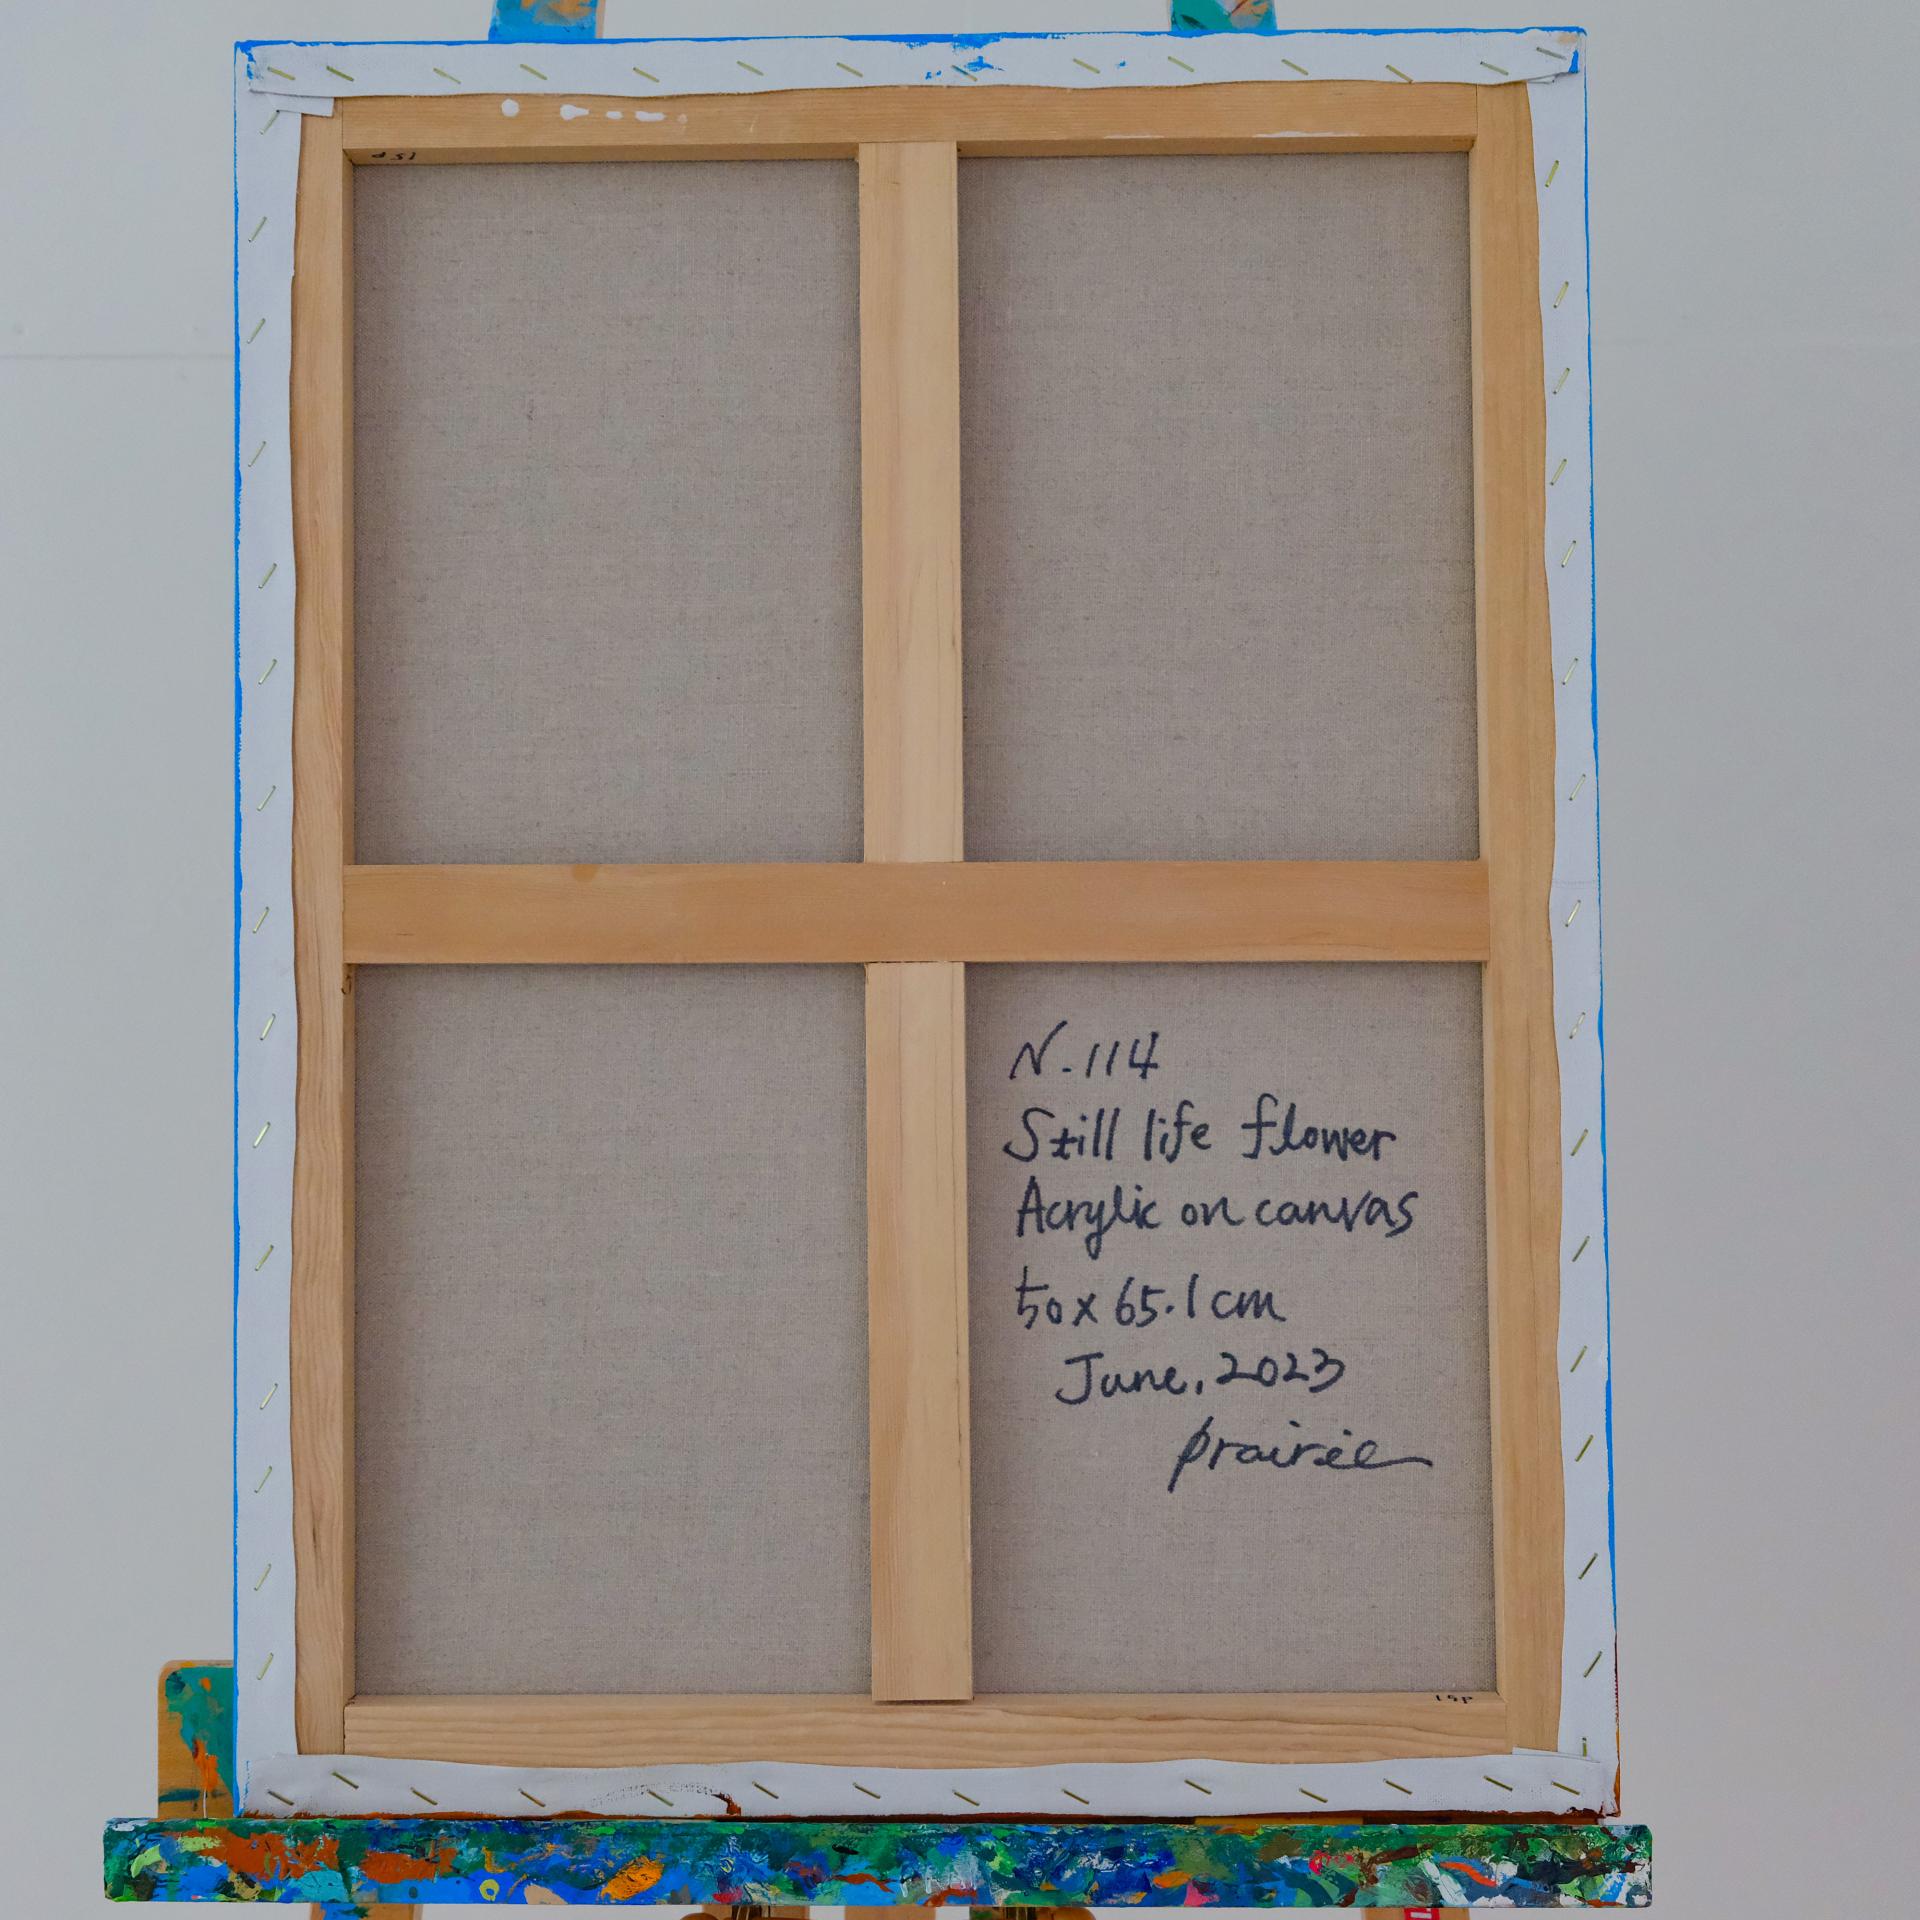 15P
N.114
Still life flower
Acrylic on canvas
50x65.1cm
June, 2023
prairie
15P